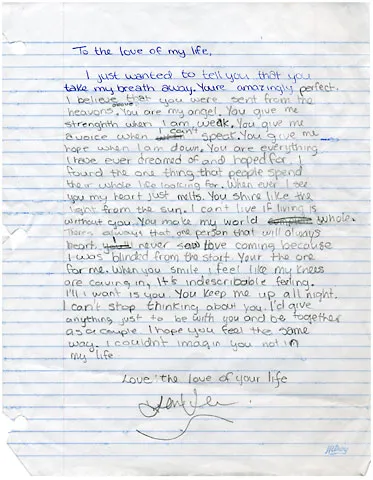 To the love of my life,
I just wanted to tell you that you
take my breath away. You're amazingly perfect.
I believe that you were sent from the
heavons. You are my angel. You give me
strenghth when I am weak. You give me
a voice when I can't speak. You give me
hope when I am down. You are everything
I have ever dreamed of and hoped for. I
found the one thing that people spend
their whole life looking for. When ever I see
you my heart just melts. You shine like the
light from the sun. I can't live if living is
without you. You make my world whole.
There's always that one person that will always
heart. never saw love coming because
I was blinded from the start. Your the one
for me. When you smile I feel like my knees
are caving in, It's indescribable feeling.
I'll I want is you. You keep me up all night.
I can't stop thinking about you. I'd give
anything just to be with you and be together
as a couple. I hope you feel the same
way. I couldnt imagin you not in
my life
Love: the love of your life
Hilroy